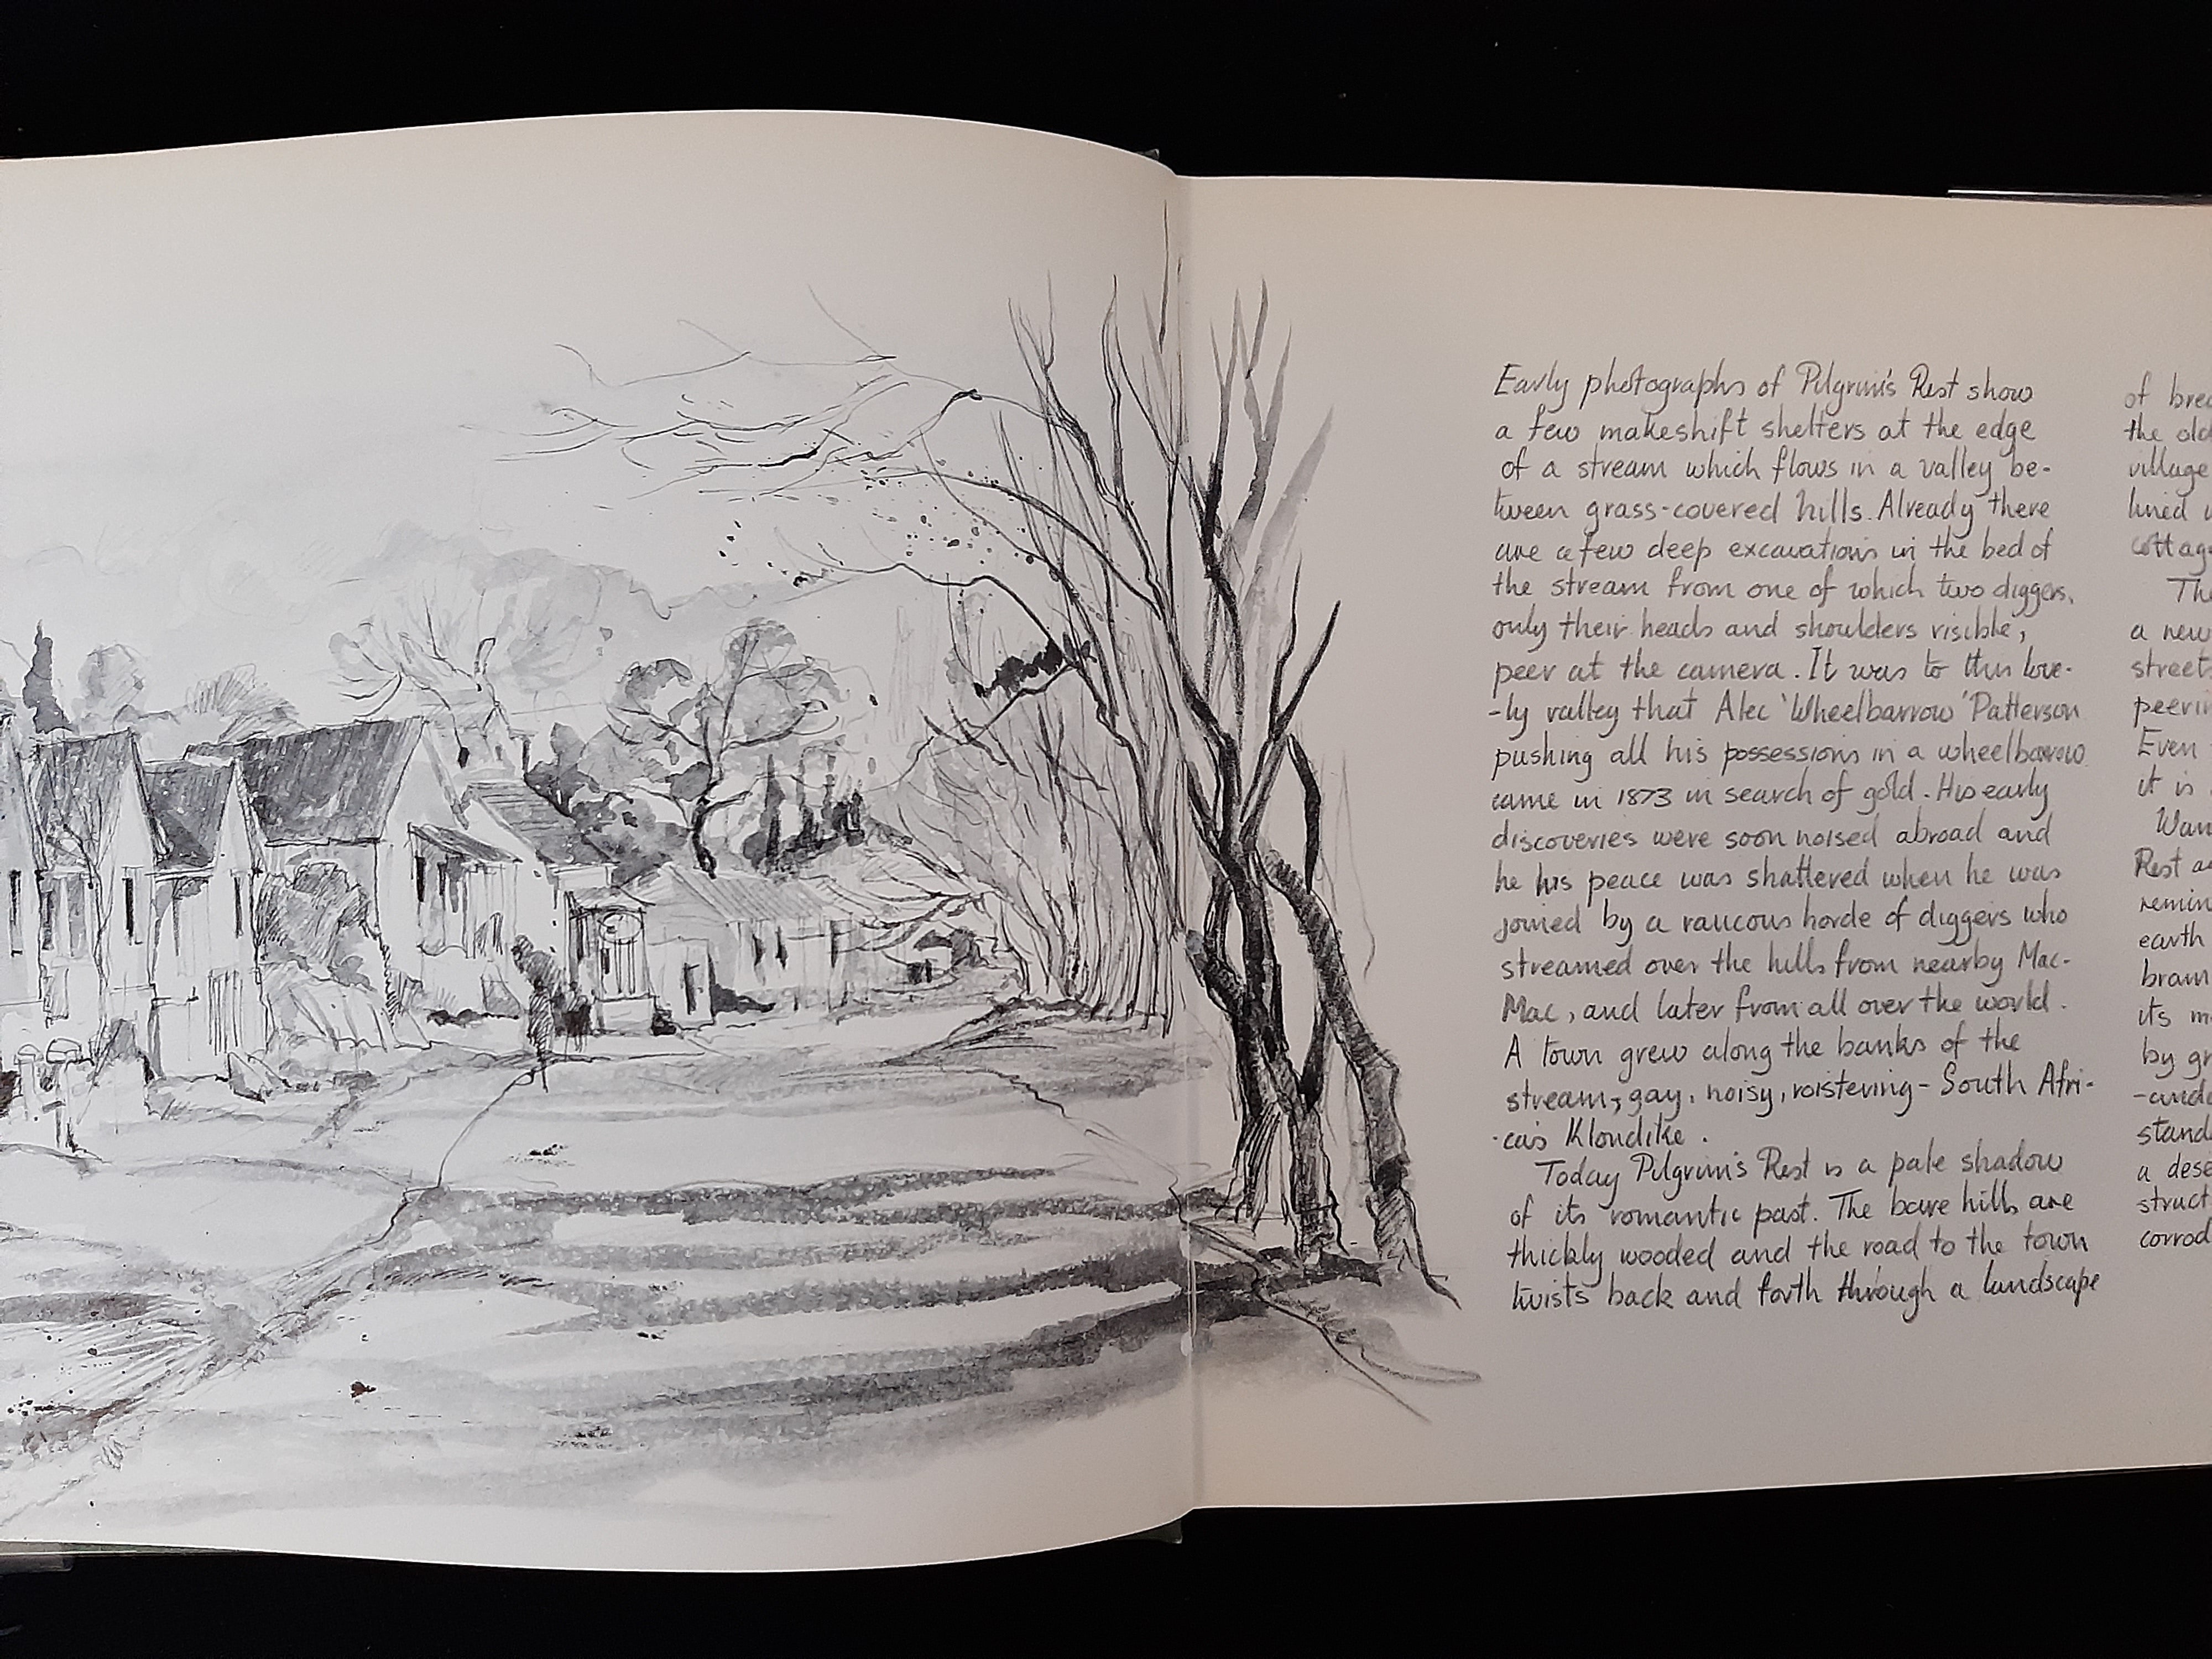 Early photographs of Pilgrim's Rest show
a few makeshift shelters at the edge
of a stream which flows in a valley be-
tween grass-covered hills. Already there
are a few deep excavations in the bed of
the stream from one of which two diggers,
only their heads and shoulders visible,
peer at the camera. It was to this love-
-ly valley that Alec 'Wheelbarrow' Patterson
pushing all his possessions in a wheelbarrow
came in 1873 in search of gold. His early
discoveries were soon noised abroad and
he his peace was shattered when he was
joined by a raucous horde of diggers who
streamed over the hills from nearby Mac-
Mac, and later from all over the world.
A town grew along the banks of the
stream, gay, noisy, roistering - South Afri-
-ca's Klondike.
Today Pilgrim's Rest is a pale shadow
of its romantic past. The bare hills are
thickly wooded and the road to the town
twists back and forth through a landscape
of
the old
village
lined
a new
street
Even
it is
Rest
earth
its
by
a